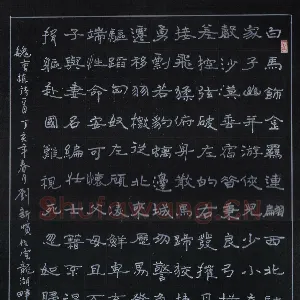 白馬飾金羈連翩西北
家子幽并遊俠兒少小
聲沙漠垂宿昔秉良弓
差控弦破左的右發摧月
接飛猱俯身散馬蹄
勇剽若豹螭邊城多警
遷移羽檄從北來厲
驅蹈匈奴左顧凌鮮卑
端性命安可懷父母且
子與妻名編壯士籍不
捐軀赴國難視死忽如
魏曹植詩 丁亥年春月劉新順於雲龍湖畔